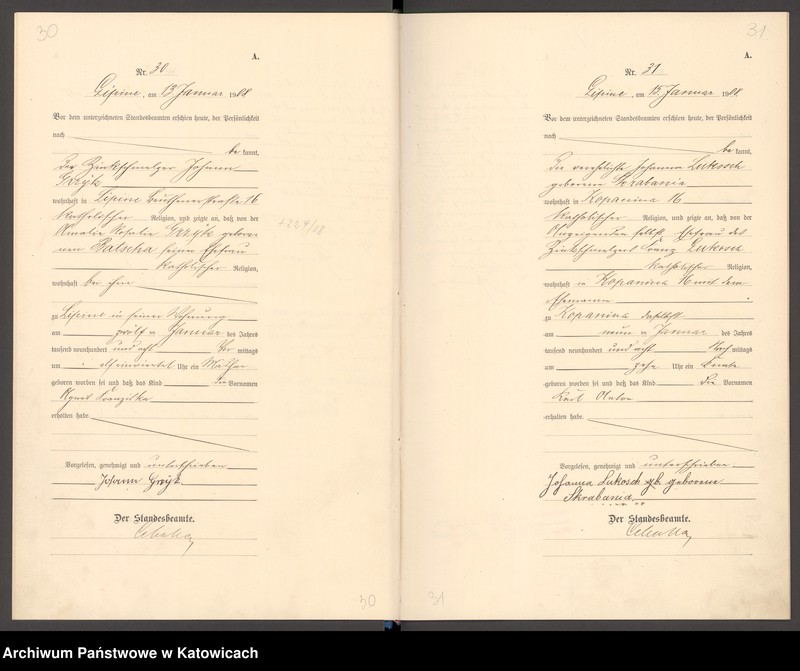 30
A.
Nr. 30
Lipine, am 13. Januar 1908
Vor dem unterzeichneten Standesbeamten erschien heute, der Persönlichkeit
nach
be kannt,
der Zinkschmelzer Johann
Grzyk
wohnhaft in Lipine Beuthenerstraße 16
katholischer Religion, und zeigte an, daß von der
Amalie Rosalie Grzyk gebore-
nen Palscha seiner Ehefrau
katholischer Religion,
wohnhaft bei ihm
zu Lipine in seiner Wohnung
am zwölf ten Januar des Jahres
tausend neunhundert und acht Vor mittags
um elf einviertel Uhr ein Mädchen
geboren worden sei und daß das Kind die Vornamen
Agnes Franziska
erhalten habe.
Vorgelesen, genehmigt und unterschrieben
Johann Grzyk
Der Standesbeamte.
30
31
A.
Nr. 31
Lipine, am 15. Januar 1908
Vor dem unterzeichneten Standesbeamten erschien heute, der Persönlichkeit
nach
be kannt,
die verehelichte Johanna Lukosch
geborene Skrabania
wohnhaft in Kopanina 16
katholischer Religion, und zeigte an, daß von der
Anzeigenden selbst, Ehefrau des
Zinkschmelzers Franz Lukosch
katholischer Religion,
wohnhaft in Kopanina 16 mit dem
Ehemanne
zu Kopanina daselbst
am neun ten Januar des Jahres
tausend neunhundert und acht Nach mittags
um zehn Uhr ein Knabe
geboren worden sei und daß das Kind die Vornamen
Karl
erhalten habe.
Vorgelesen, genehmigt und unterschrieben
Johanna Lukosch gb. geborene
Skrabania
Der Standesbeamte.
31
Archiwum Państwowe w Katowicach